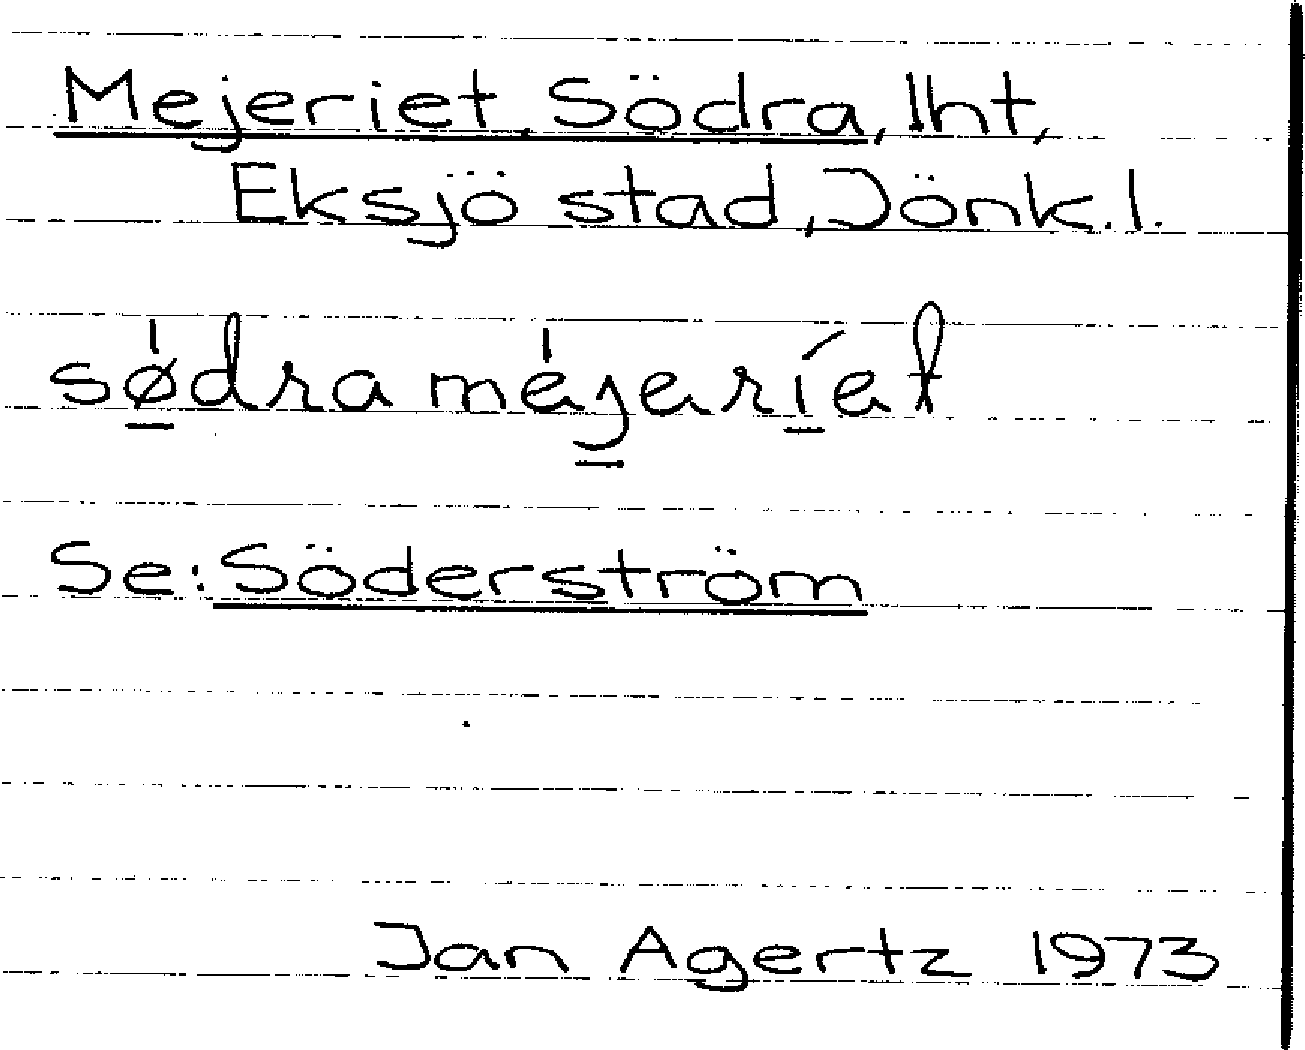 Mejeriet, Södra, lht,
Eksjö stad, Jönk. l.
sødra mejeríet
Se: Söderström
Jan Agertz 1973